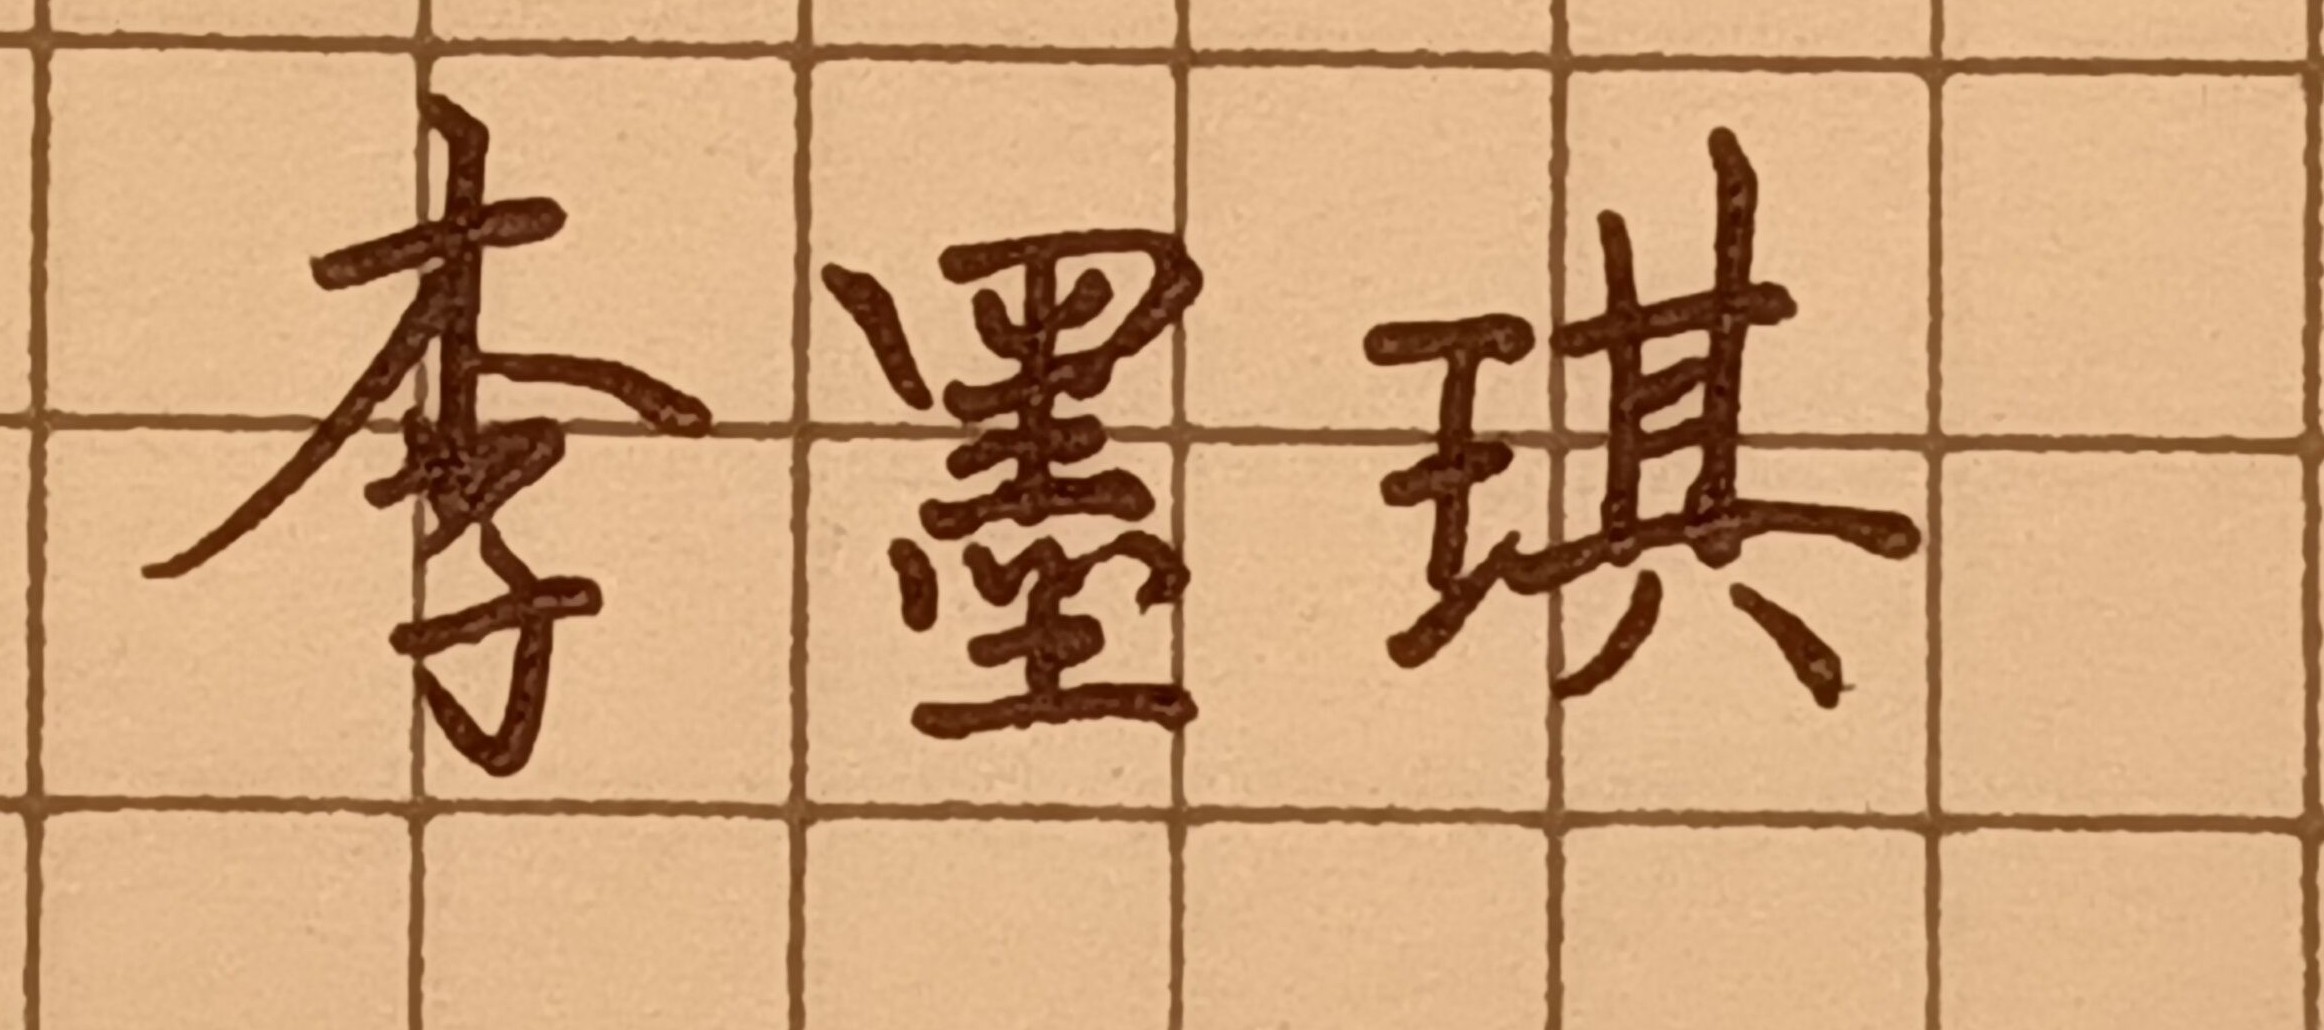 李墨琪